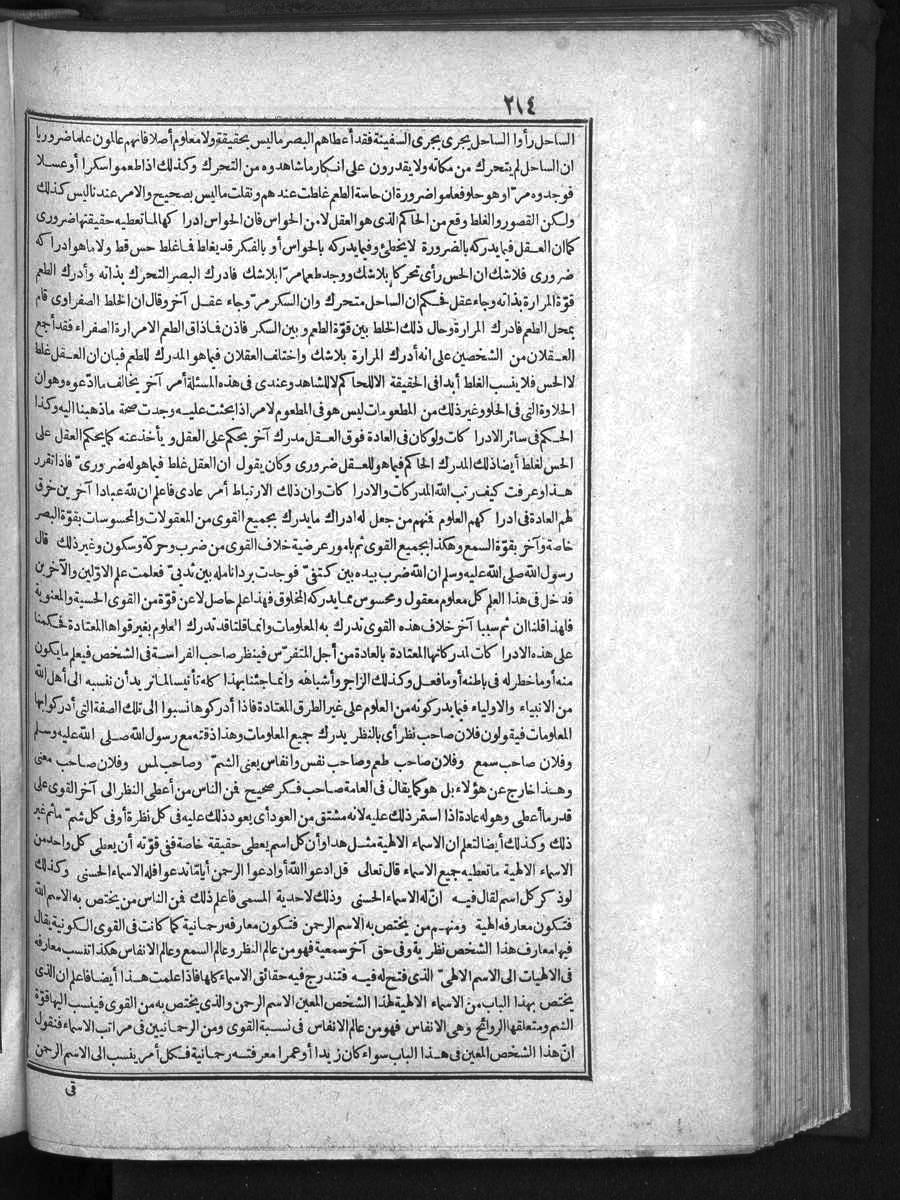 ٢١٤
الساحل رأوا الساحل يجرى بجرى السفينة فقد أعطاهم البصر ماليس بحقيقة ولا معلوم أصلا فانهم عالمون علما ضروريا
ان الساحل لم يتحرك من مكانه ولا يقدرون على انكار ما شاهدوه من التحرك وكذلك اذا طعموا سكرا أو عسلا
فوجدوه مرّا وهو حلو فعلموا ضرورة ان حاسة الطعم غلطت عندهم ونقلت ماليس بصحيح والامر عندنا ليس كذلك
ولكن القصور والغلط وقع من الحاكم الذى هو العقل لا من الحواس فان الحواس ادراكها لما تعطيه حقيقتها ضرورى
كما ان العقل فيما يدركه بالضرورة لا يخطئ وفيما يدركه بالحواس أو بالفكر قد يغلط فما غلط حس قط ولا ما هو ادراكه
ضرورى فلا شك ان الحس رأى تحركا بلا شك ووجد طعما مرّا بلا شك فادرك البصر التحرك بذاته وأدرك الطعم
قوّة المرارة بذاته وجاء عقل فحكم ان الساحل متحرك وان السكر مرّ وجاء عقل آخر وقال ان الخلط الصفراوى قام
بمحل الطعم فادرك المرارة وحال ذلك الخلط بين قوّة الطعم وبين السكر فاذن فما ذاق الطعم الا مرارة الصفراء فقد أجمع
العقلان من الشخصين على انه أدرك المرارة بلا شك واختلف العقلان فيما هو المدرك للطعم فبان ان العقل غلط
لا الحس فلا ينسب الغلط أبدا فى الحقيقة الا للحاكم لا للشاهد وعندى فى هذه المسئلة أمر آخر يخالف ما ادّعوه وهو ان
الحلاوة التى فى الحلو وغير ذلك من المطعومات ليس هو فى المطعوم لامر اذا بحثت عليه وجدت صحة ما ذهبنا اليه وكذا
الحكم فى سائر الادراكات ولو كان فى العادة فوق العقل مدرك آخر يحكم على العقل ويأخذ عنه كما يحكم العقل على
الحس لغلط أيضا ذلك المدرك الحاكم فيما هو للعقل ضرورى وكان يقول ان العقل غلط فيما هو له ضرورىّ فاذا تقرر
هذا وعرفت كيف رتب الله المدركات والادراكات وان ذلك الارتباط أمر عادى فاعلم ان لله عبادا آخرين خرق
لهم العادة فى ادراكهم العلوم فمنهم من جعل له ادراك ما يدرك بجميع القوى من المعقولات والمحسوسات بقوّة البصر
خاصة وآخر بقوّة السمع وهكذا بجميع القوى ثم بامور عرضية خلاف القوى من ضرب وحركة وسكون وغير ذلك قال
رسول الله صلى الله عليه وسلم ان الله ضرب بيده بين كتفىّ فوجدت برد انامله بين ثديىّ فعلمت علم الاوّلين والآخرين
فدخل فى هذا العلم كل معلوم معقول ومحسوس مما يدركه المخلوق فهذا علم حاصل لا عن قوّة من القوى الحسية والمعنوية
فلهذا قلنا ان ثم سببا آخر خلاف هذه القوى تدرك به المعلومات وانما قلنا قد تدرك العلوم بغير قواها المعتادة فحكمنا
على هذه الادراكات لمدركاتها المعتادة بالعادة من أجل المتفرّس فينظر صاحب الفراسة فى الشخص فيعلم ما يكون
منه أو ما خطر له فى باطنه أو ما فعل وكذلك الزاجر وأشباهه وانما جئنا بهذا كله تأنيسا لما نريد أن ننسبه الى أهل الله
من الانبياء والاولياء فيما يدركونه من العلوم على غير الطرق المعتادة فاذا أدركوها نسبوا الى تلك الصفة التى أدركوا بها
المعلومات فيقولون فلان صاحب نظر أى بالنظر يدرك جميع المعلومات وهذا ذقته مع رسول الله صلى الله عليه وسلم
وفلان صاحب سمع وفلان صاحب طعم وصاحب نفس وانفاس يعنى الشمّ وصاحب لمس وفلان صاحب معنى
وهذا خارج عن هؤلاء بل هو كما يقال فى العامة صاحب فكر صحيح فمن الناس من أعطى النظر الى آخر القوى على
قدر ما أعطى وهو له عادة اذا استمر ذلك عليه لانه مشتق من العود أى يعود ذلك عليه فى كل نظرة أو فى كل شمّ ماثم غير
ذلك وكذلك أيضا لتعلم ان الاسماء الالهية مثل هذا وأن كل اسم يعطى حقيقة خاصة ففى قوّته أن يعطى كل واحد من
الاسماء الالهية ما تعطيه جميع الاسماء قال تعالى قل ادعوا الله أو ادعوا الرحمن أياما تدعوا فله الاسماء الحسنى وكذلك
لو ذكر كل اسم لقال فيه انّ له الاسماء الحسنى وذلك لاحدية المسمى فاعلم ذلك فمن الناس من يختص به الاسم الله
فتكون معارفه الهية ومنهم من يختص به الاسم الرحمن فتكون معارفه رحمانية كما كانت فى القوى الكونية يقال
فيها معارف هذا الشخص نظرية وفى حق آخر سمعية فهو من عالم النظر وعالم السمع وعالم الانفاس هكذا تنسب معارفه
فى الالهيات الى الاسم الالهىّ الذى فتح له فيه فتندرج فيه حقائق الاسماء كلها فاذا علمت هذا أيضا فاعلم ان الذى
يختص بهذا الباب من الاسماء الالهية لهذا الشخص المعين الاسم الرحمن والذى يختص به من القوى فينسب اليها قوّة
الشم ومتعلقها الروائح وهى الانفاس فهو من عالم الانفاس فى نسبة القوى ومن الرحمانيين فى مراتب الاسماء فنقول
انّ هذا الشخص المعين فى هذا الباب سواء كان زيدا أو عمرا معرفته رحمانية فكل أمر ينسب الى الاسم الرحمن
فى